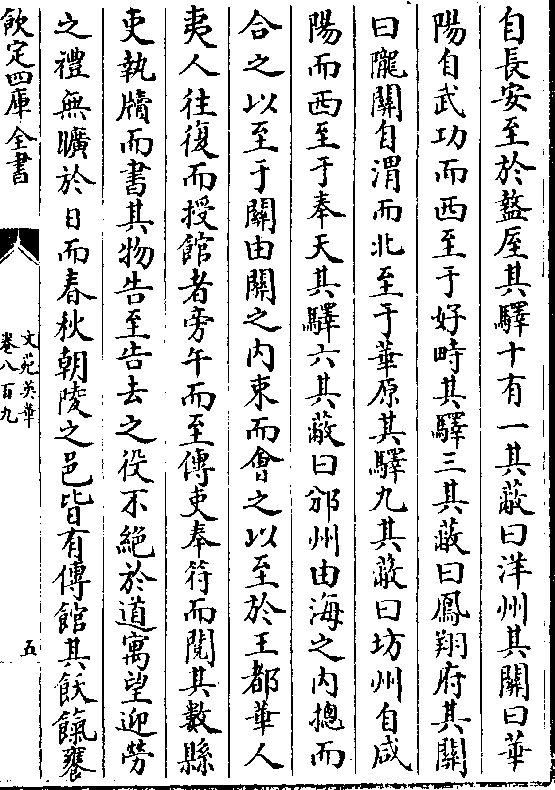 自長安至於盩厔其驛十有一其蔽曰洋州其關曰華
陽自武功而西至于好畤其驛三其蔽曰鳳翔府其關
曰隴關自渭而北至于華原其驛九其蔽曰坊州自咸
陽而西至于奉天其驛六其蔽曰邠州由海之内摠而
合之以至于關由關之内束而㑹之以至於王都華人
夷人往復而授館者旁午而至傳吏奉符而閲其數縣
吏執牘而書其物告至告去之役不絶於道寓望迎勞
之禮無曠於日而春秋朝陵之邑皆有傳館其飫餼饔
欽定四庫全書
文苑英華
卷八百九
五